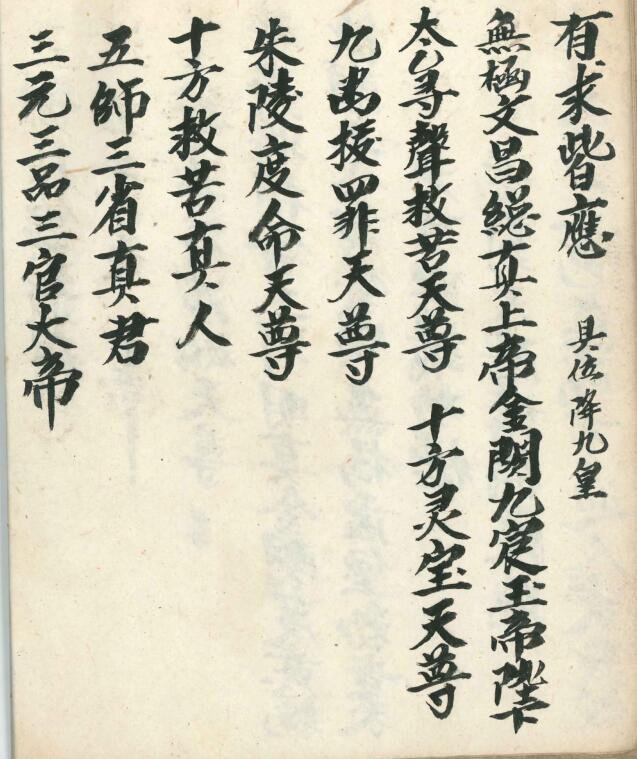 有求皆應 具位降九皇
無極文昌總真上帝金闕九宸玉帝陛下
太乙尋聲救苦天尊 十方灵宝天尊
九幽拔罪天尊
朱陵度命天尊
十方救苦真人
五師三省真君
三元三品三官大帝